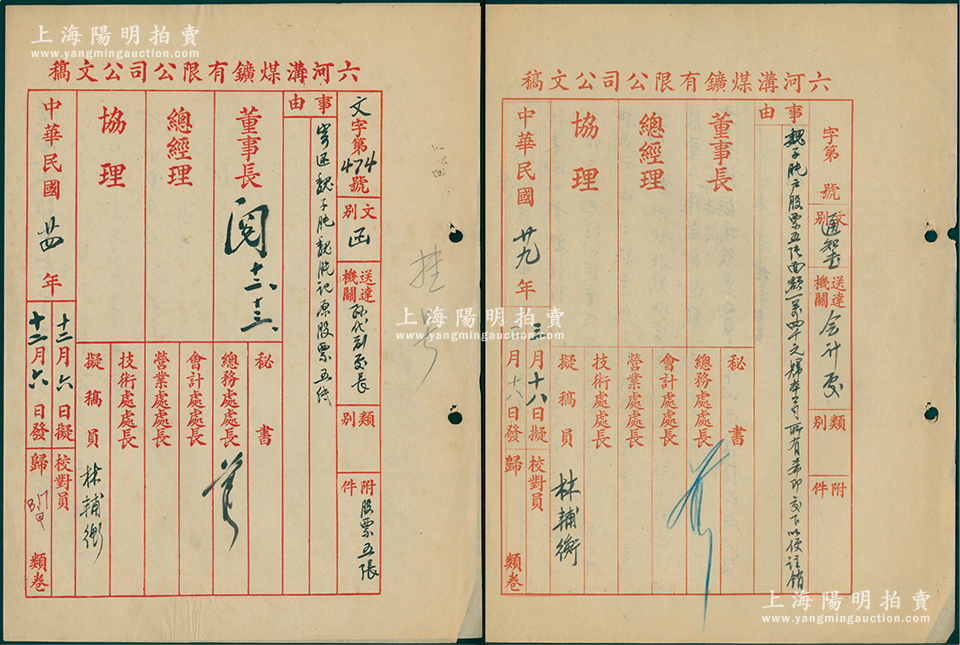 上海陽明拍賣
www.yangmingauction.com
六河溝煤鑛有限公司公文稿
文字第474號
文別 函
送達機關
類別
附件 股票五張
事由
寄還魏子肫魏肫記原股票五紙
董事長 閱 十二、十三、
總經理
協理
秘書
總務處處長
會計處處長
營業處處長
技術處處長
擬稿員 林輔衡
中華民國廿四年
十二月六日擬
十二月六日發
校對員
歸 類卷
掛號
六河溝煤鑛有限公司公文稿
字第 號
文別 通知書
送達機關 會計處
類別
附件
事由
魏子肫戶股票五張面額一萬四千元歸本公司所有希即交下以便註銷
董事長
總經理
協理
秘書
總務處處長
會計處處長
營業處處長
技術處處長
擬稿員 林輔衡
中華民國廿九年
三月十八日擬
月十八日發
校對員
歸 類卷
上海陽明拍賣
www.yangmingauction.com
上海陽明拍賣
www.yangmingauction.com